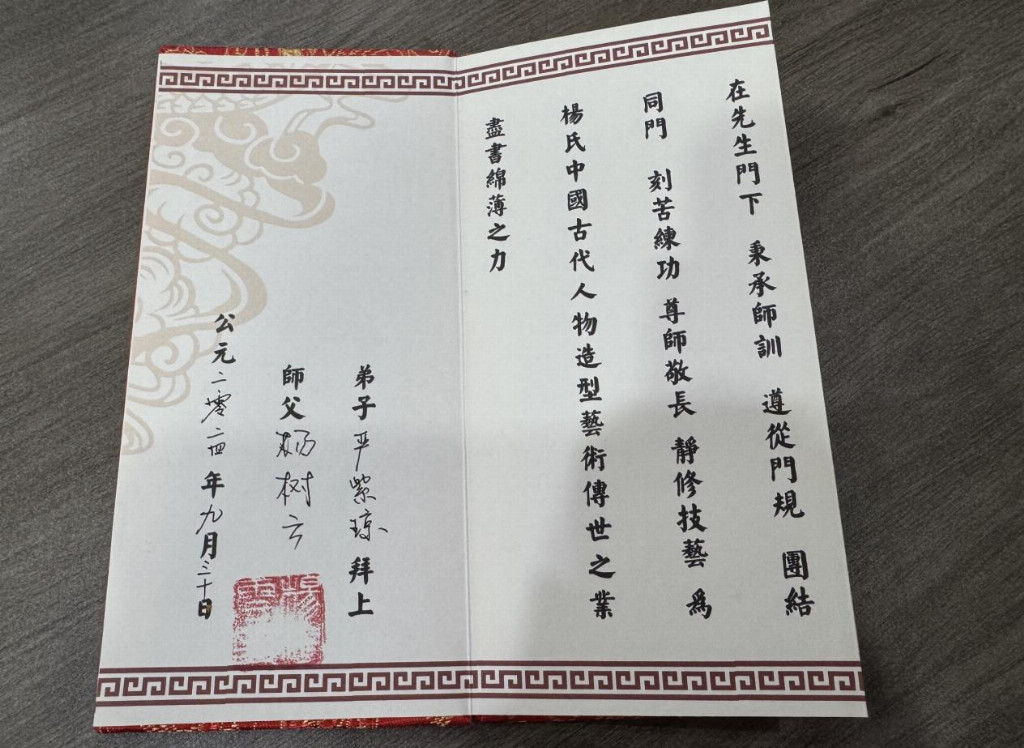 在先生門下 秉承師訓 遵從門規 團結
同門 刻苦練功 尊師敬長 靜修技藝 為
楊氏中國古代人物造型藝術傳世之業
盡書綿薄之力
弟子平紫琼拜上
師父杨树云
公元二零二四年九月三十日